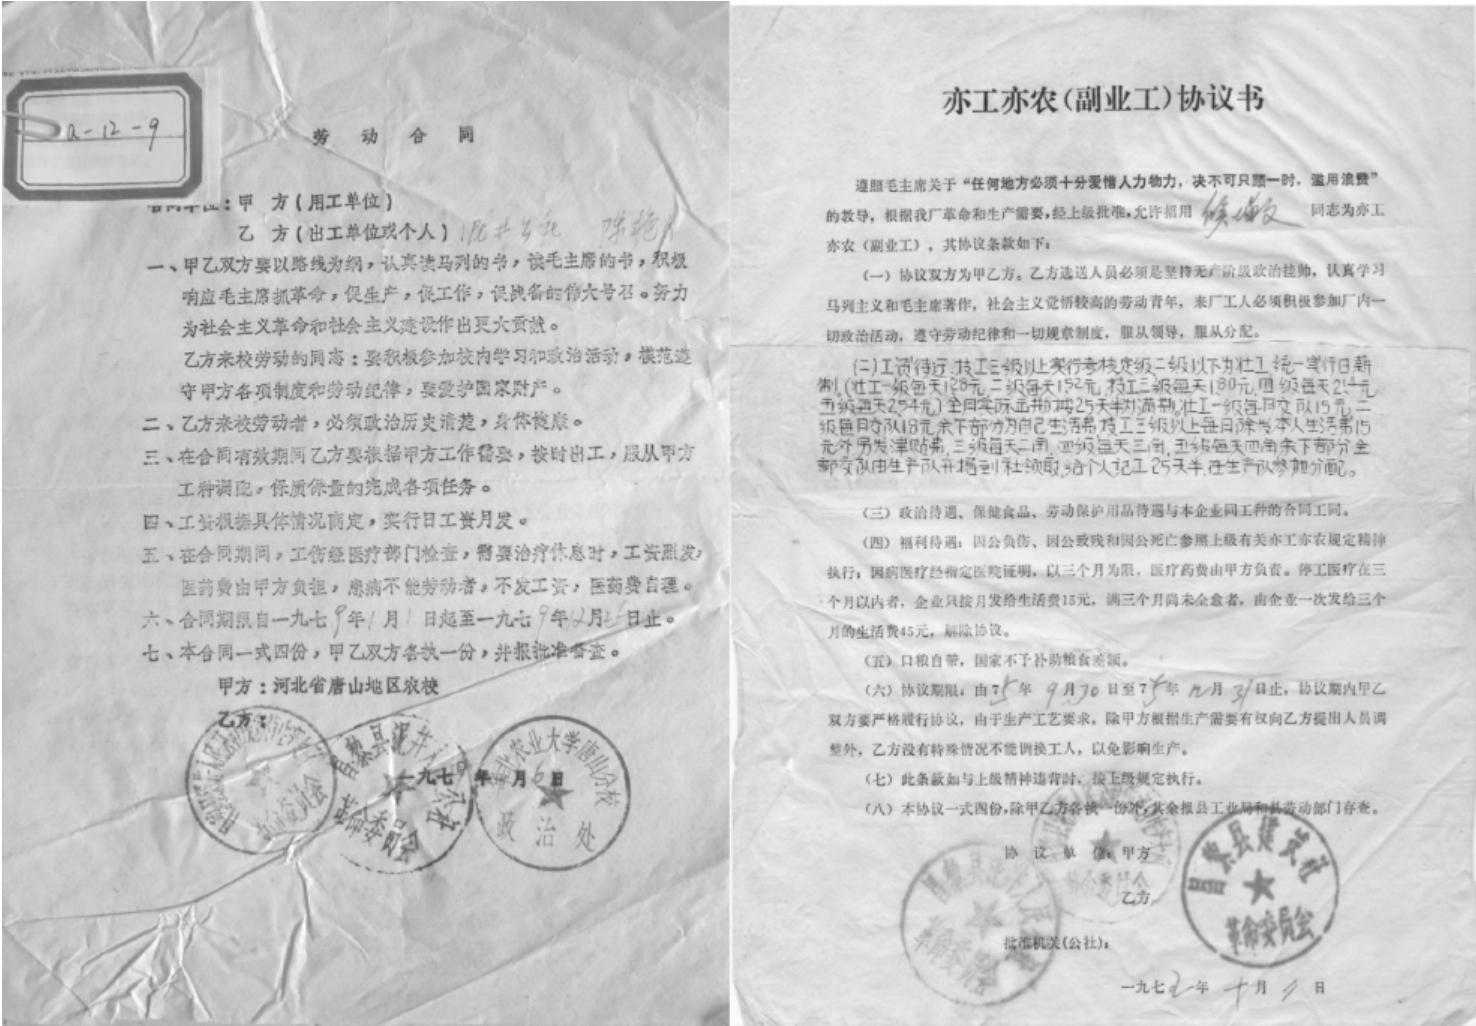 a-12-9
劳动合同
甲 方(用工单位)
乙 方(出工单位或个人)
一、甲乙双方要以路线为纲，认真读马列的书，读毛主席的书，积极
响应毛主席抓革命，促生产，促工作，促战备的伟大号召。努力
为社会主义革命和社会主义建设作出更大贡献。
乙方来校劳动的同志：要积极参加校内学习和政治活动，模范遵
守甲方各项制度和劳动纪律，要爱护国家财产。
二、乙方来校劳动者，必须政治历史清楚，身体健康。
三、在合同有效期间乙方要根据甲方工作需要，按时出工，服从甲方
工种调配，保质保量的完成各项任务。
四、工资根据具体情况商定，实行日工资月发。
五、在合同期间，工伤经医疗部门检查，需要治疗休息时，工资照发，
医药费由甲方负担，患病不能劳动者，不发工资，医药费自理。
六、合同期限自一九七9年1月1日起至一九七9年12月 日止。
七、本合同一式四份，甲乙双方各执一份，并报批准备查。
甲方：河北省唐山地区农校
乙方：
昌黎县泥井人 公社
革命委员会
一九七 年 月6日
河北农业大学唐山分校
政治处
亦工亦农(副业工)协议书
遵照毛主席关于“任何地方必须十分爱惜人力物力，决不可只顾一时，滥用浪费”
的教导，根据我厂革命和生产需要，经上级批准，允许招用 同志为亦工
亦农（副业工），其协议条款如下：
（一）协议双方为甲乙方。乙方选送人员必须是坚持无产阶级政治挂帅，认真学习
马列主义和毛主席著作，社会主义觉悟较高的劳动青年，来厂工人必须积极参加厂内一
切政治活动，遵守劳动纪律和一切规章制度，服从领导，服从分配。
(二)工资待迂,技工三级以上实行考核定级二级以下为壮工统一实行日薪
制,(壮工一级每天1.28元,二级每天1.52元,技工三级每天1.80元,四级每天2.1 元
五级每天2.54元)全月实际出勤按25天半为满勤,壮工一级每月交队15元,二
级每月交队18元余下部分为自己生活费技工三级以上每月除发本人生活费15
元外另发津贴费,三级每天二角,四级每天三角,五级每天四角余下部分全
部交队由生产队开据到社领取,给个人记工25天半,在生产队参加分配。
（三）政治待遇、保健食品、劳动保护用品待遇与本企业同工种的合同工同。
（四）福利待遇：因公负伤、因公致残和因公死亡参照上级有关亦工亦农规定精神
执行；因病医疗经指定医院证明，以三个月为限，医疗药费由甲方负责。停工医疗在三
个月以内者，企业只按月发给生活费15元，满三个月尚未全愈者，由企业一次发给三个
月的生活费45元，解除协议。
（五）口粮自带，国家不予补助粮食差额。
（六）协议期限：由75年9月30日至75年12月31日止，协议期内甲乙
双方要严格履行协议，由于生产工艺要求，除甲方根据生产需要有权向乙方提出人员调
整外，乙方没有特殊情况不能调换工人，以免影响生产。
（七）此条款如与上级精神违背时，按上级规定执行。
（八）本协议一式四份，除甲乙方各执一份外，其余报县工业局和县劳动部门存查。
协议单位：甲方
乙方
批准机关(公社)：
昌黎县泥井人民公社
革命委员会
昌黎县建筑社
革命委员会
一九七五年十月 日